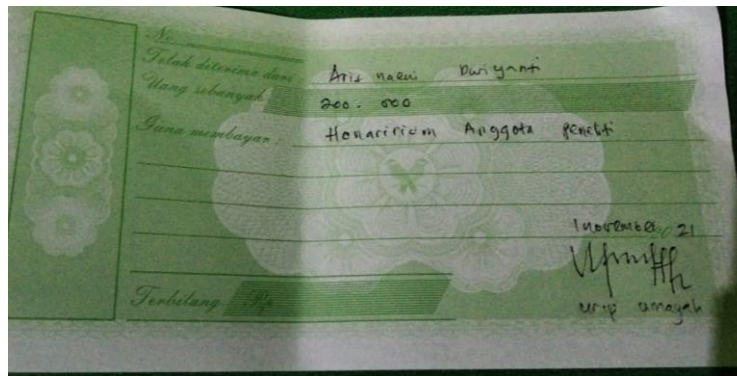 No.
Telah diterima dari : Aris naeni Dwiyanti
Uang sebanyak 200.000
Guna membayar : Honaririum Anggota peneliti
1 november 2021
Terbilang Rp
urip umayah